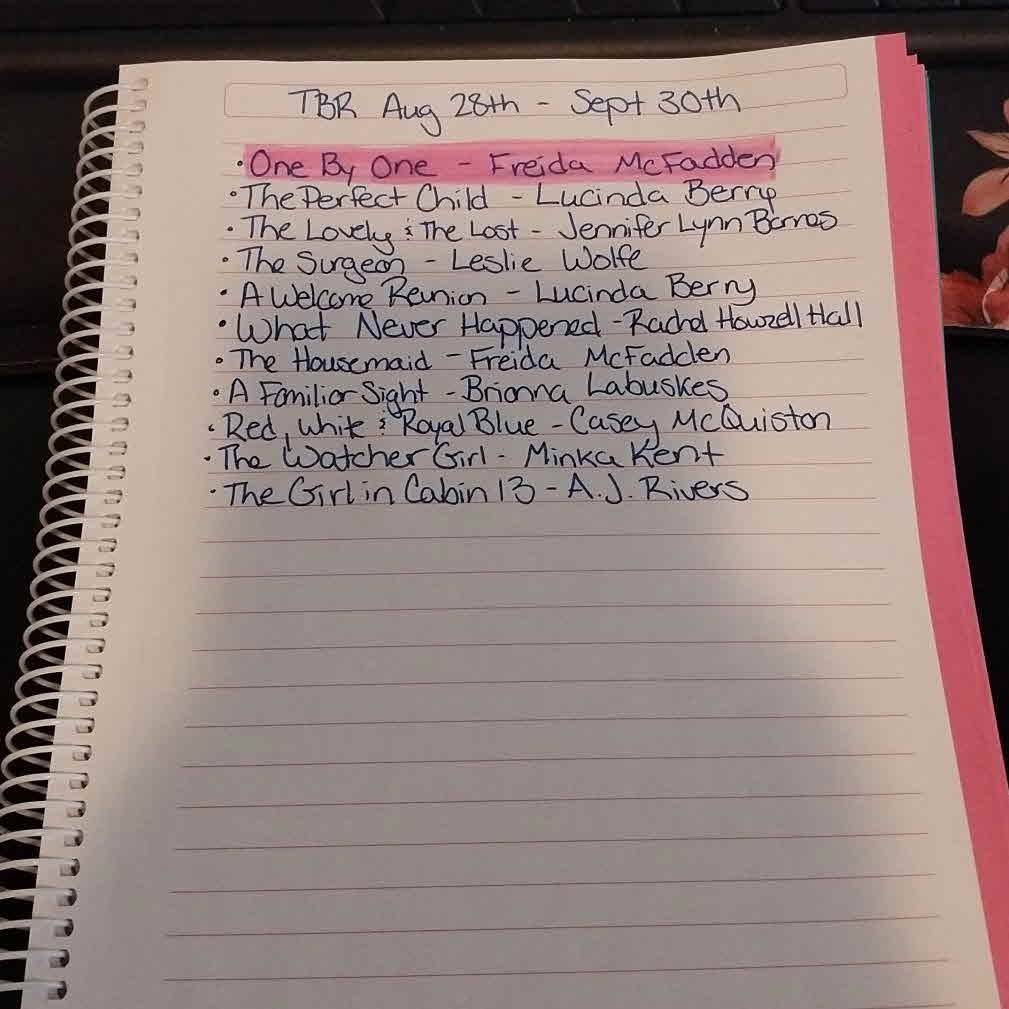 TBR Aug 28th - Sept 30th
• One By One - Freida McFadden
• The Perfect Child - Lucinda Berry
• The Lovely & The Lost - Jennifer Lynn Barnes
• The Surgeon - Leslie Wolfe
• A Welcome Reunion - Lucinda Berry
• What Never Happened - Rachel Howzell Hall
• The Housemaid - Freida McFadden
• A Familiar Sight - Brianna Labuskes
• Red, White & Royal Blue - Casey McQuiston
• The Watcher Girl - Minka Kent
• The Girl in Cabin 13 - A.J. Rivers